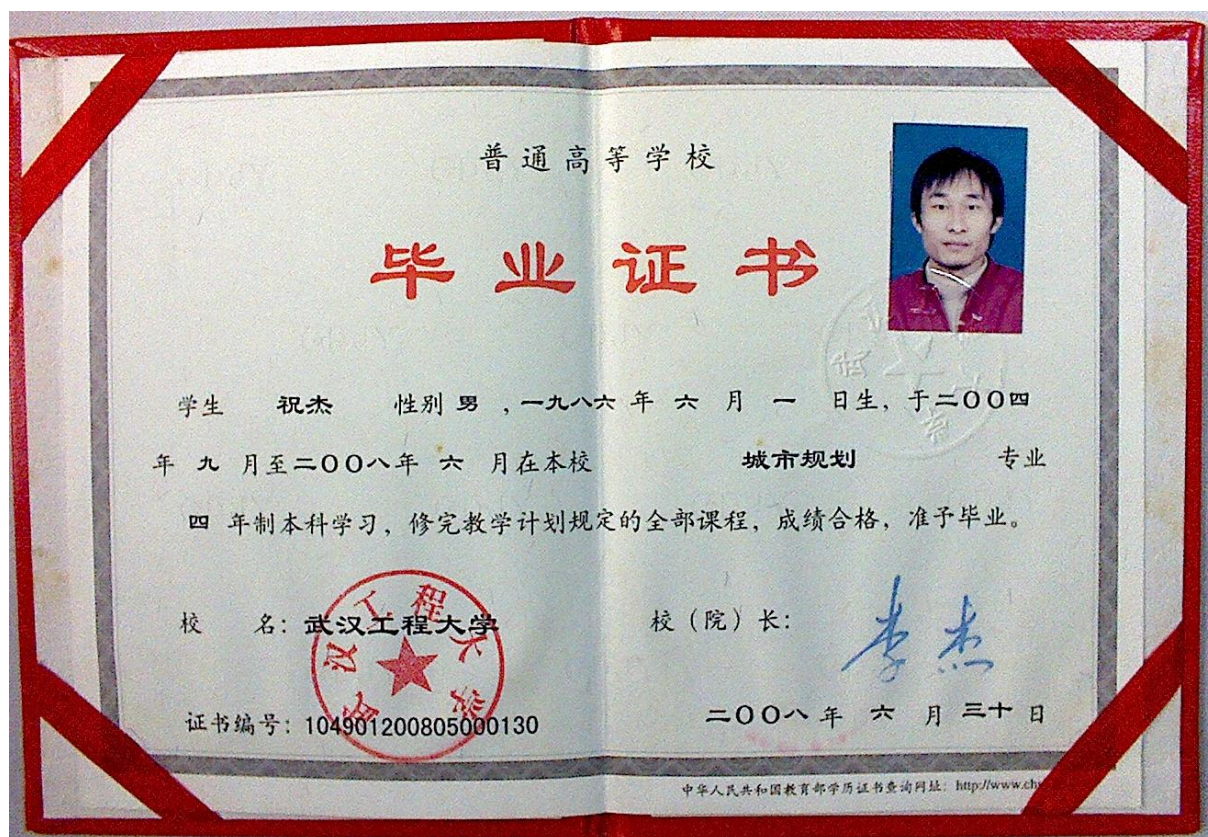 普通高等学校
毕业证书
学生 祝杰 性别 男 ,一九八六 年 六 月 一 日生, 于二OO四
年 九 月至二OO八年 六 月在本校 城市规划 专业
四 年制本科学习, 修完教学计划规定的全部课程, 成绩合格, 准予毕业。
校 名: 武汉工程大学
校(院)长: 李杰
武汉工程大学
证书编号: 104901200805000130
二OO八 年 六 月 三十 日
中华人民共和国教育部学历证书查询网址: http://www.ch